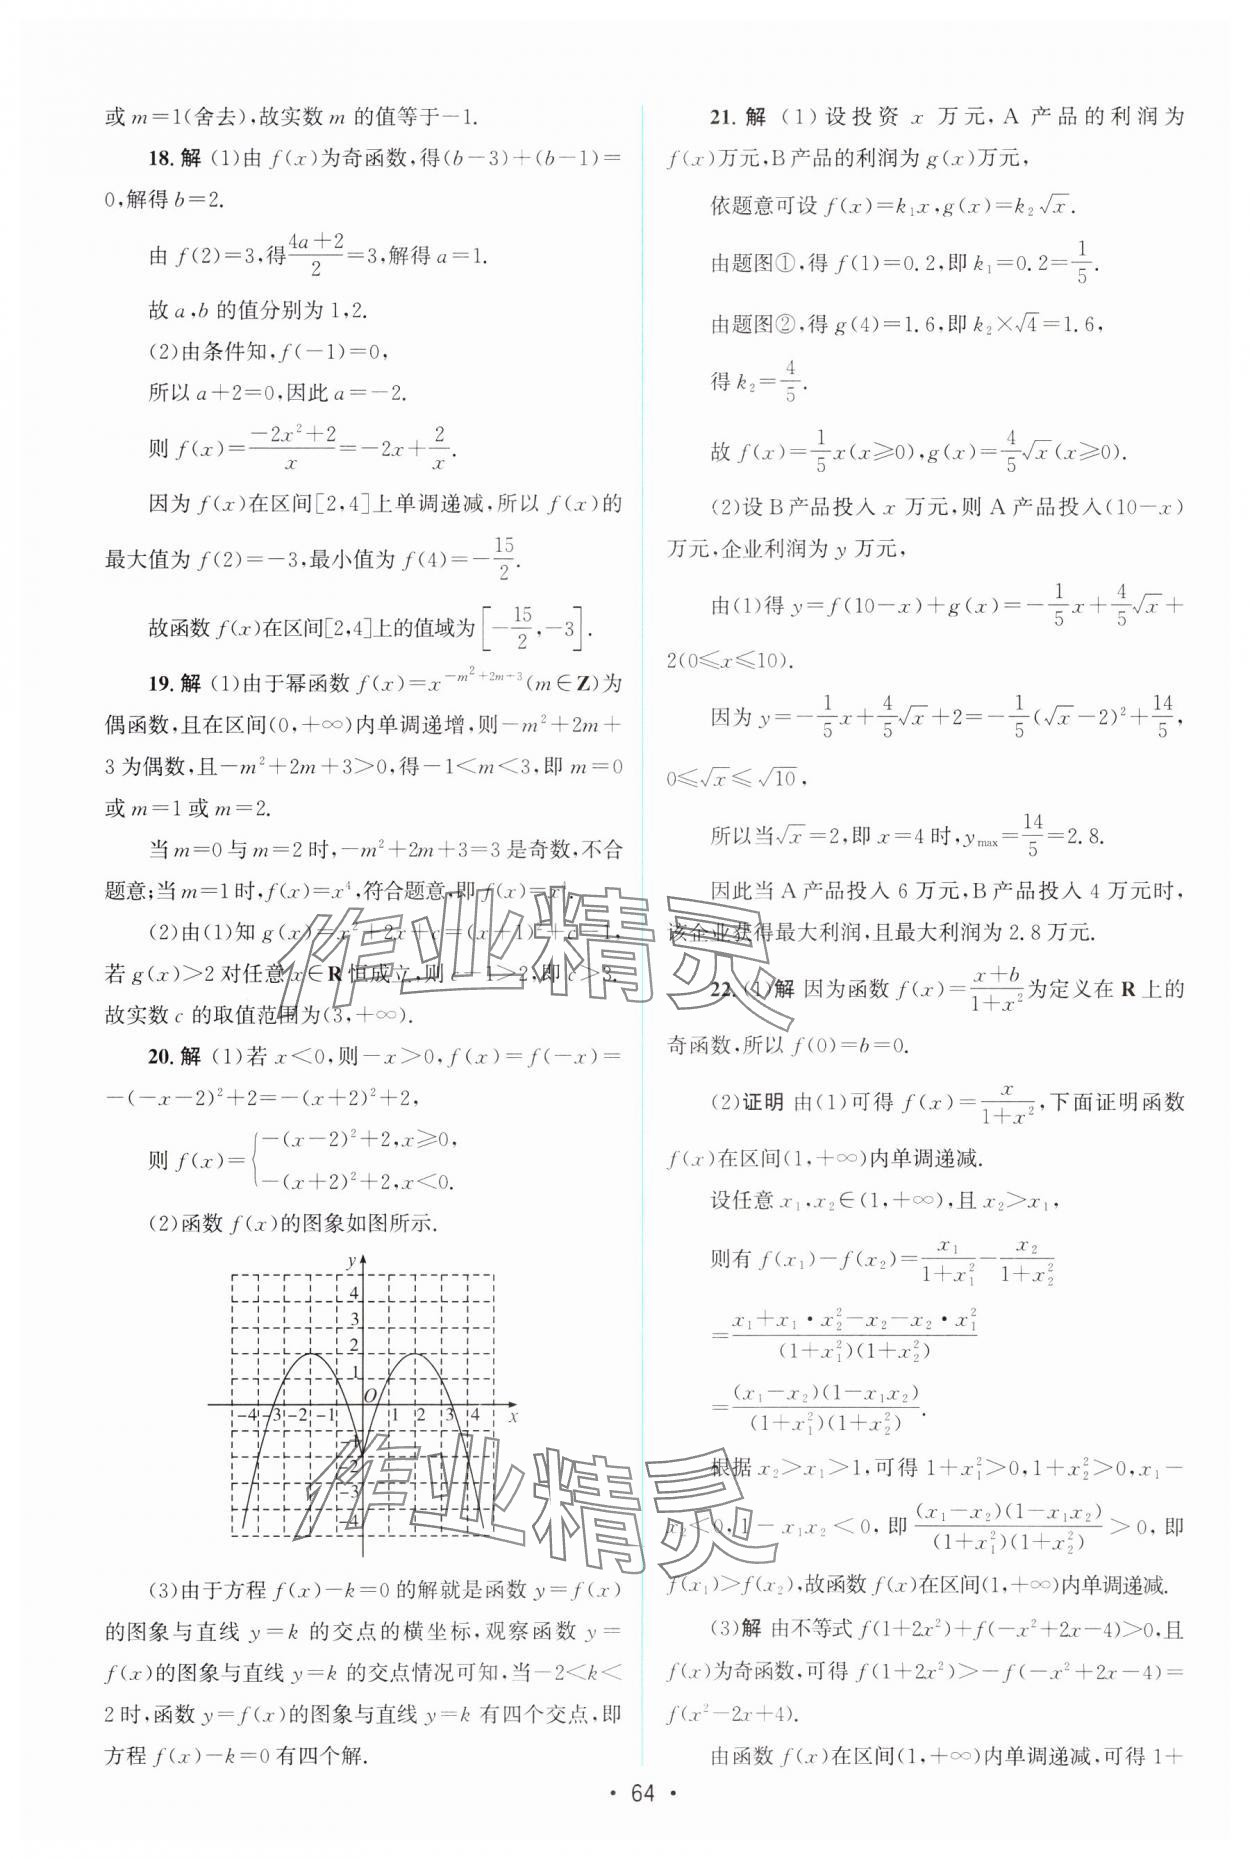 或 m=1(舍去),故实数 m 的值等于-1.
18. 解 (1)由 f(x)为奇函数,得(b-3)+(b-1)=
0,解得 b=2.
由 f(2)=3,得\frac{4a+2}{2}=3,解得 a=1.
故 a,b 的值分别为 1,2.
(2)由条件知,f(-1)=0,
所以 a+2=0,因此 a=-2.
则 f(x)=\frac{-2x^2+2}{x}=-2x+\frac{2}{x}.
因为 f(x)在区间[2,4]上单调递减,所以 f(x)的
最大值为 f(2)=-3,最小值为 f(4)=-\frac{15}{2}.
故函数 f(x)在区间[2,4]上的值域为[-\frac{15}{2},-3].
19. 解 (1)由于幂函数 f(x)=x^{-m^2+2m+3}(m∈Z)为
偶函数,且在区间(0,+∞)内单调递增,则-m²+2m+
3 为偶数,且-m²+2m+3>0,得-1<m<3,即 m=0
或 m=1 或 m=2.
当 m=0 与 m=2 时,-m²+2m+3=3 是奇数,不合
题意;当 m=1 时,f(x)=x⁴,符合题意,即 f(x)=x⁴.
(2)由(1)知 g(x)=x²+2x+c=(x+1)²+c-1,
若 g(x)>2 对任意 x∈R 恒成立,则 c-1>2,即 c>3.
故实数 c 的取值范围为(3,+∞).
20. 解 (1)若 x<0,则-x>0,f(x)=f(-x)=
-(-x-2)²+2=-(x+2)²+2,
则 f(x)={-(x-2)²+2,x≥0,
-(x+2)²+2,x<0.
(2)函数 f(x)的图象如图所示.
y
4
3
2
1
O
-4 -3 -2 -1 1 2 3 4 x
-1
-2
-3
-4
(3)由于方程 f(x)-k=0 的解就是函数 y=f(x)
的图象与直线 y=k 的交点的横坐标,观察函数 y=
f(x)的图象与直线 y=k 的交点情况可知,当-2<k<
2 时,函数 y=f(x)的图象与直线 y=k 有四个交点,即
方程 f(x)-k=0 有四个解.
21. 解 (1)设投资 x 万元,A 产品的利润为
f(x)万元,B 产品的利润为 g(x)万元,
依题意可设 f(x)=k₁x,g(x)=k₂√x.
由题图①,得 f(1)=0.2,即 k₁=0.2=\frac{1}{5}.
由题图②,得 g(4)=1.6,即 k₂×√4=1.6,
得 k₂=\frac{4}{5}.
故 f(x)=\frac{1}{5}x(x≥0),g(x)=\frac{4}{5}√x(x≥0).
(2)设 B 产品投入 x 万元,则 A 产品投入(10-x)
万元,企业利润为 y 万元,
由(1)得 y=f(10-x)+g(x)=-\frac{1}{5}x+\frac{4}{5}√x+
2(0≤x≤10).
因为 y=-\frac{1}{5}x+\frac{4}{5}√x+2=-\frac{1}{5}(√x-2)²+\frac{14}{5},
0≤√x≤√10,
所以当√x=2,即 x=4 时,y_{max}=\frac{14}{5}=2.8.
因此当 A 产品投入 6 万元,B 产品投入 4 万元时,
该企业获得最大利润,且最大利润为 2.8 万元.
22. (1)解 因为函数 f(x)=\frac{x+b}{1+x^2}为定义在 R 上的
奇函数,所以 f(0)=b=0.
(2)证明 由(1)可得 f(x)=\frac{x}{1+x^2},下面证明函数
f(x)在区间(1,+∞)内单调递减.
设任意 x₁,x₂∈(1,+∞),且 x₂>x₁,
则有 f(x₁)-f(x₂)=\frac{x_1}{1+x_1^2}-\frac{x_2}{1+x_2^2}
=\frac{x_1+x_1·x_2^2-x_2-x_2·x_1^2}{(1+x_1^2)(1+x_2^2)}
=\frac{(x_1-x_2)(1-x_1x_2)}{(1+x_1^2)(1+x_2^2)}.
根据 x₂>x₁>1,可得 1+x₁²>0,1+x₂²>0,x₁-
x₂<0,1-x₁x₂<0,即\frac{(x_1-x_2)(1-x_1x_2)}{(1+x_1^2)(1+x_2^2)}>0,即
f(x₁)>f(x₂),故函数 f(x)在区间(1,+∞)内单调递减.
(3)解 由不等式 f(1+2x²)+f(-x²+2x-4)>0,且
f(x)为奇函数,可得 f(1+2x²)>-f(-x²+2x-4)=
f(x²-2x+4).
由函数 f(x)在区间(1,+∞)内单调递减,可得 1+
· 64 ·
作业精灵
作业精灵